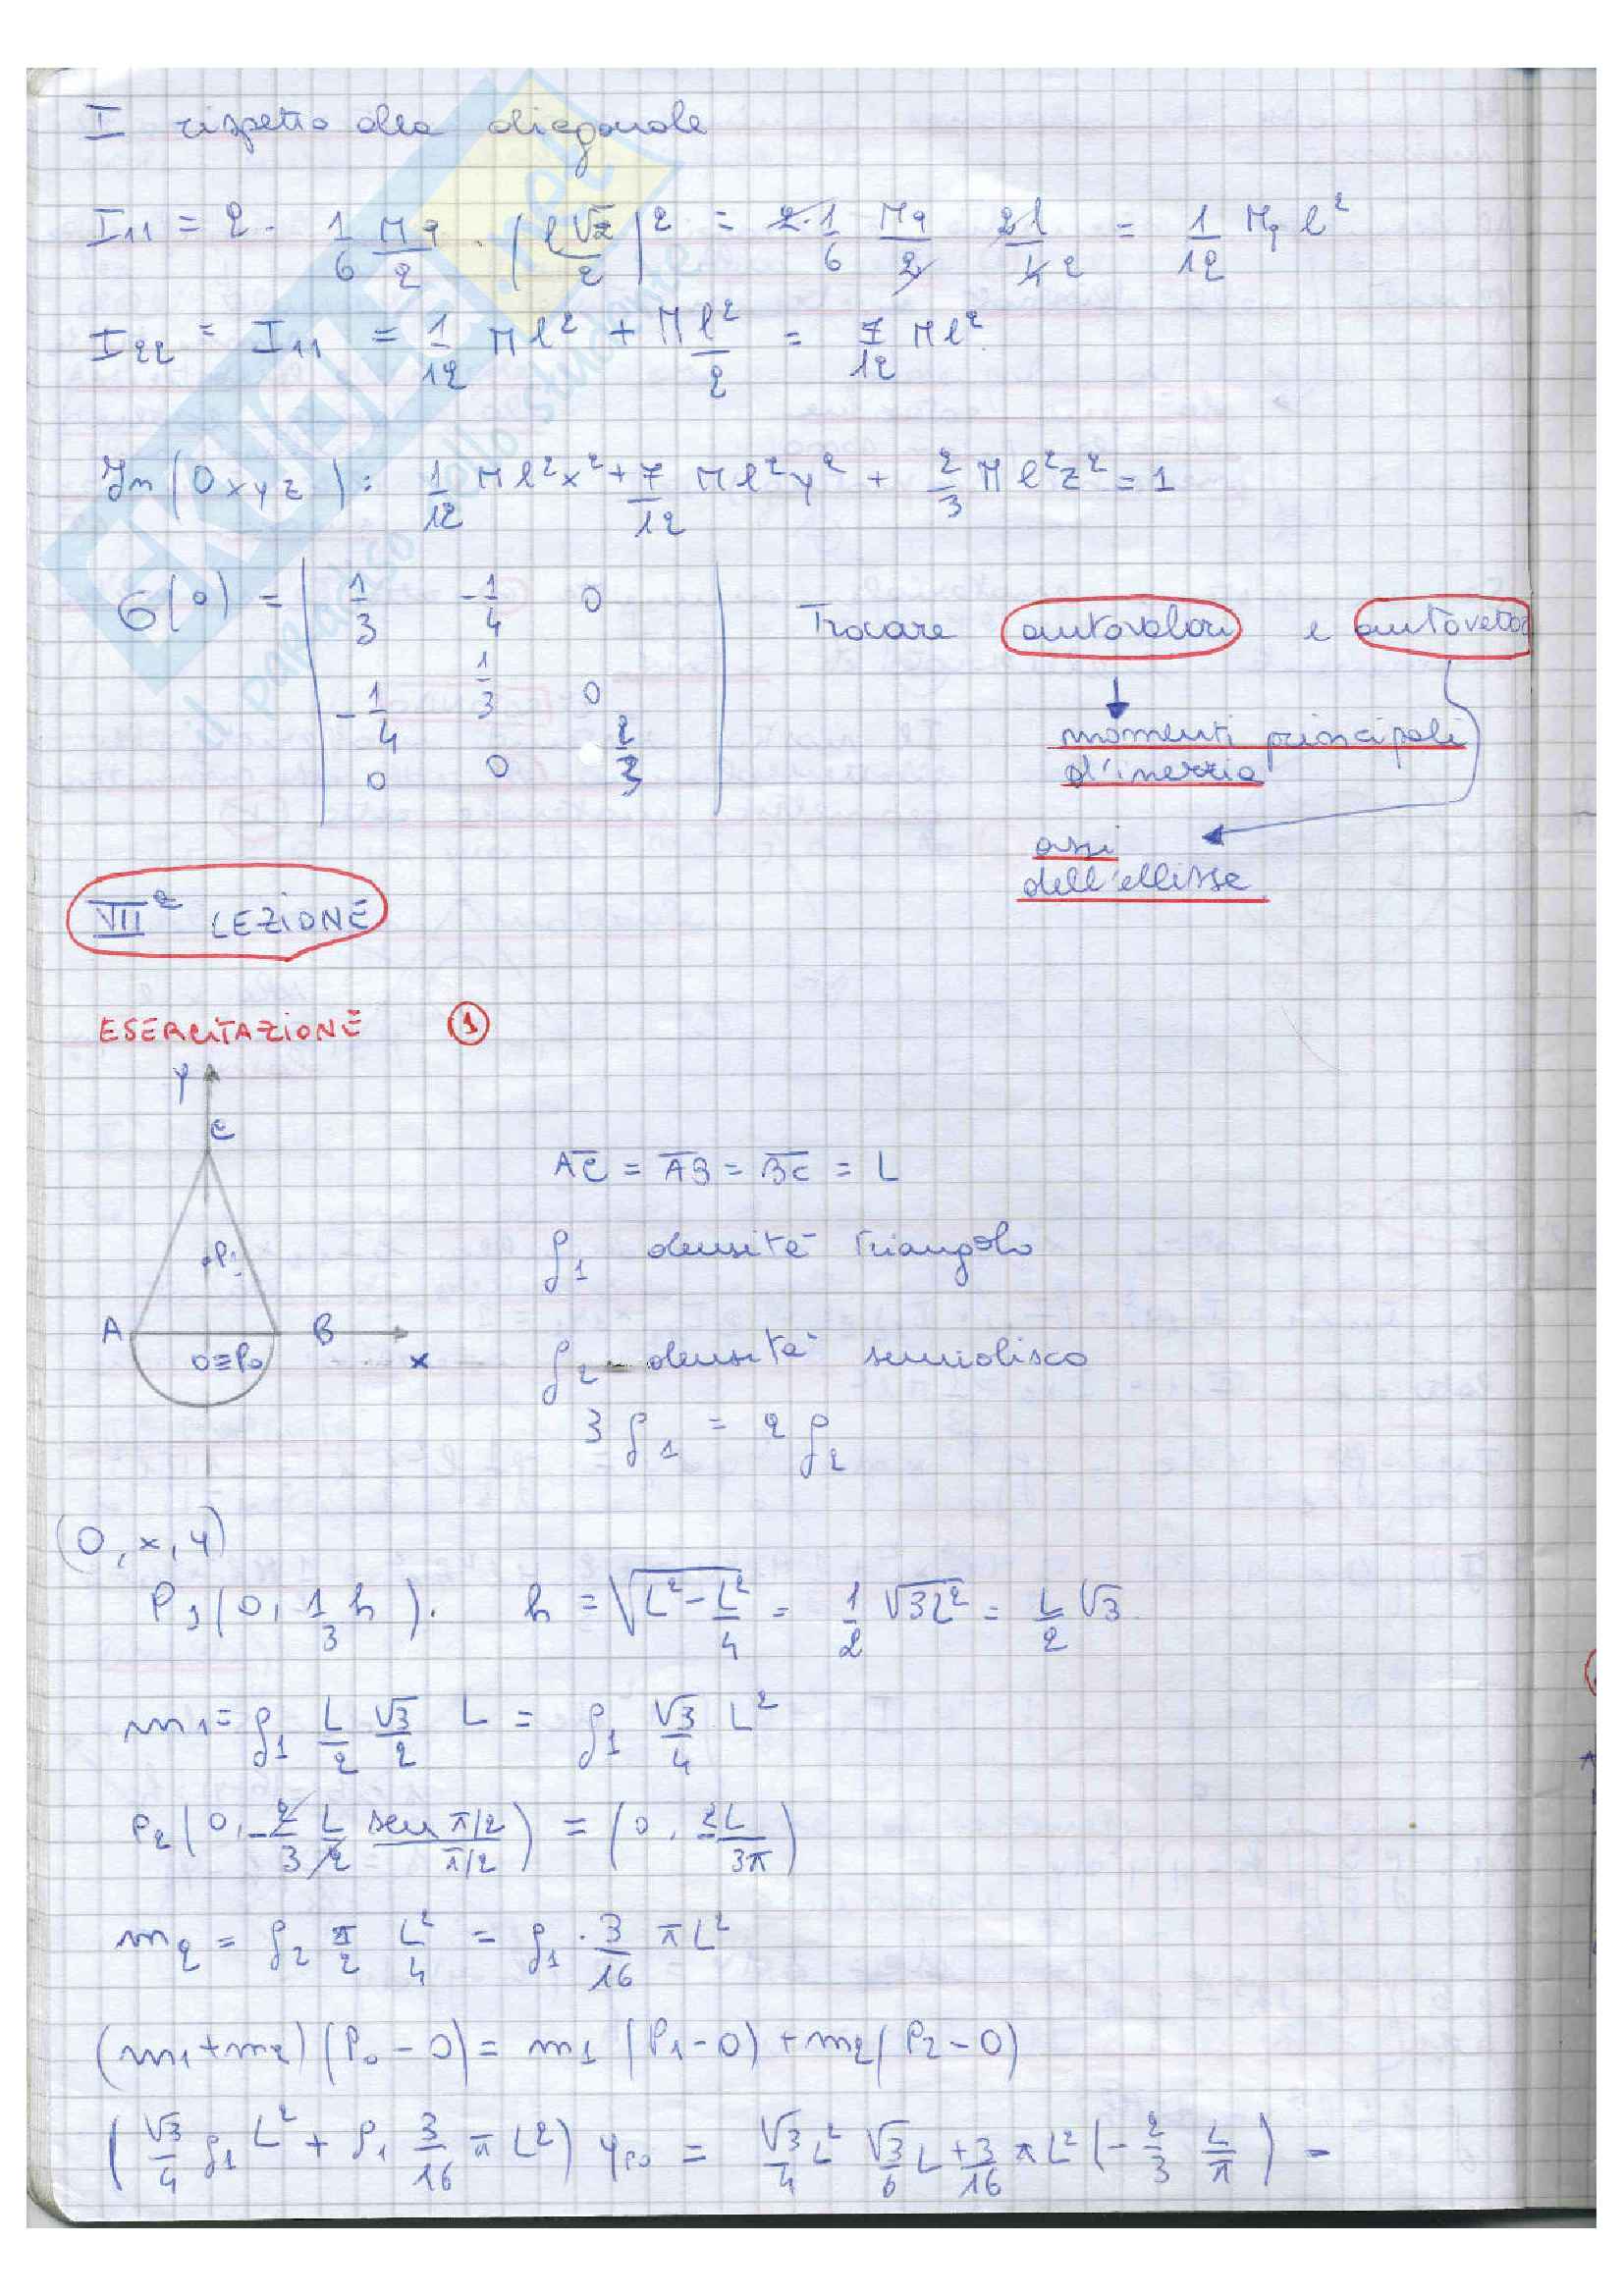 I rispetto alla diagonale
I₁₁ = 2 · 1/6 Mq/2 · (l√2/2)² = 2·1/6 Mq/2 2l/42 = 1/12 Mq l²
I₂₂ = I₁₁ = 1/12 M l² + M l²/2 = 7/12 M l²
In (Oxyz): 1/12 M l² x² + 7/12 M l² y² + 2/3 M l² z² = 1
σ(0) = | 1/3 -1/4 0 |
| -1/4 1/3 0 |
| 0 0 2/3 |
Trovare autovalori e autovettor
momenti principali
d'inerzia
assi
dell'ellisse
VIIª LEZIONE
ESERCITAZIONE 1
y
C
P₁
A B
O≡P₀ x
AC = AB = BC = L
ρ₁ densità triangolo
ρ₂ densità semidisco
3ρ₁ = 2ρ₂
(O, x, y)
P₁(0, 1/3 h). h = √(L² - L²/4) = 1/2 √3L² = L/2 √3
m₁ = ρ₁ L/2 √3/2 L = ρ₁ √3/4 L²
P₂(0, -2/3 L/2 sen π/2 / π/2) = (0, -2L/3π)
m₂ = ρ₂ π/2 L²/4 = ρ₁ · 3/16 πL²
(m₁+m₂)(P₀-O) = m₁(P₁-O) + m₂(P₂-O)
(√3/4 ρ₁ L² + ρ₁ 3/16 π L²) yP₀ = √3/4 L² √3/6 L + 3/16 πL² (-2/3 L/π) =
EKUELL.net
il paradiso dello studente